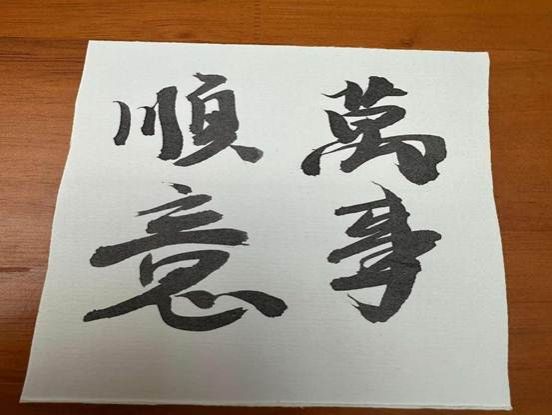 萬事
順意